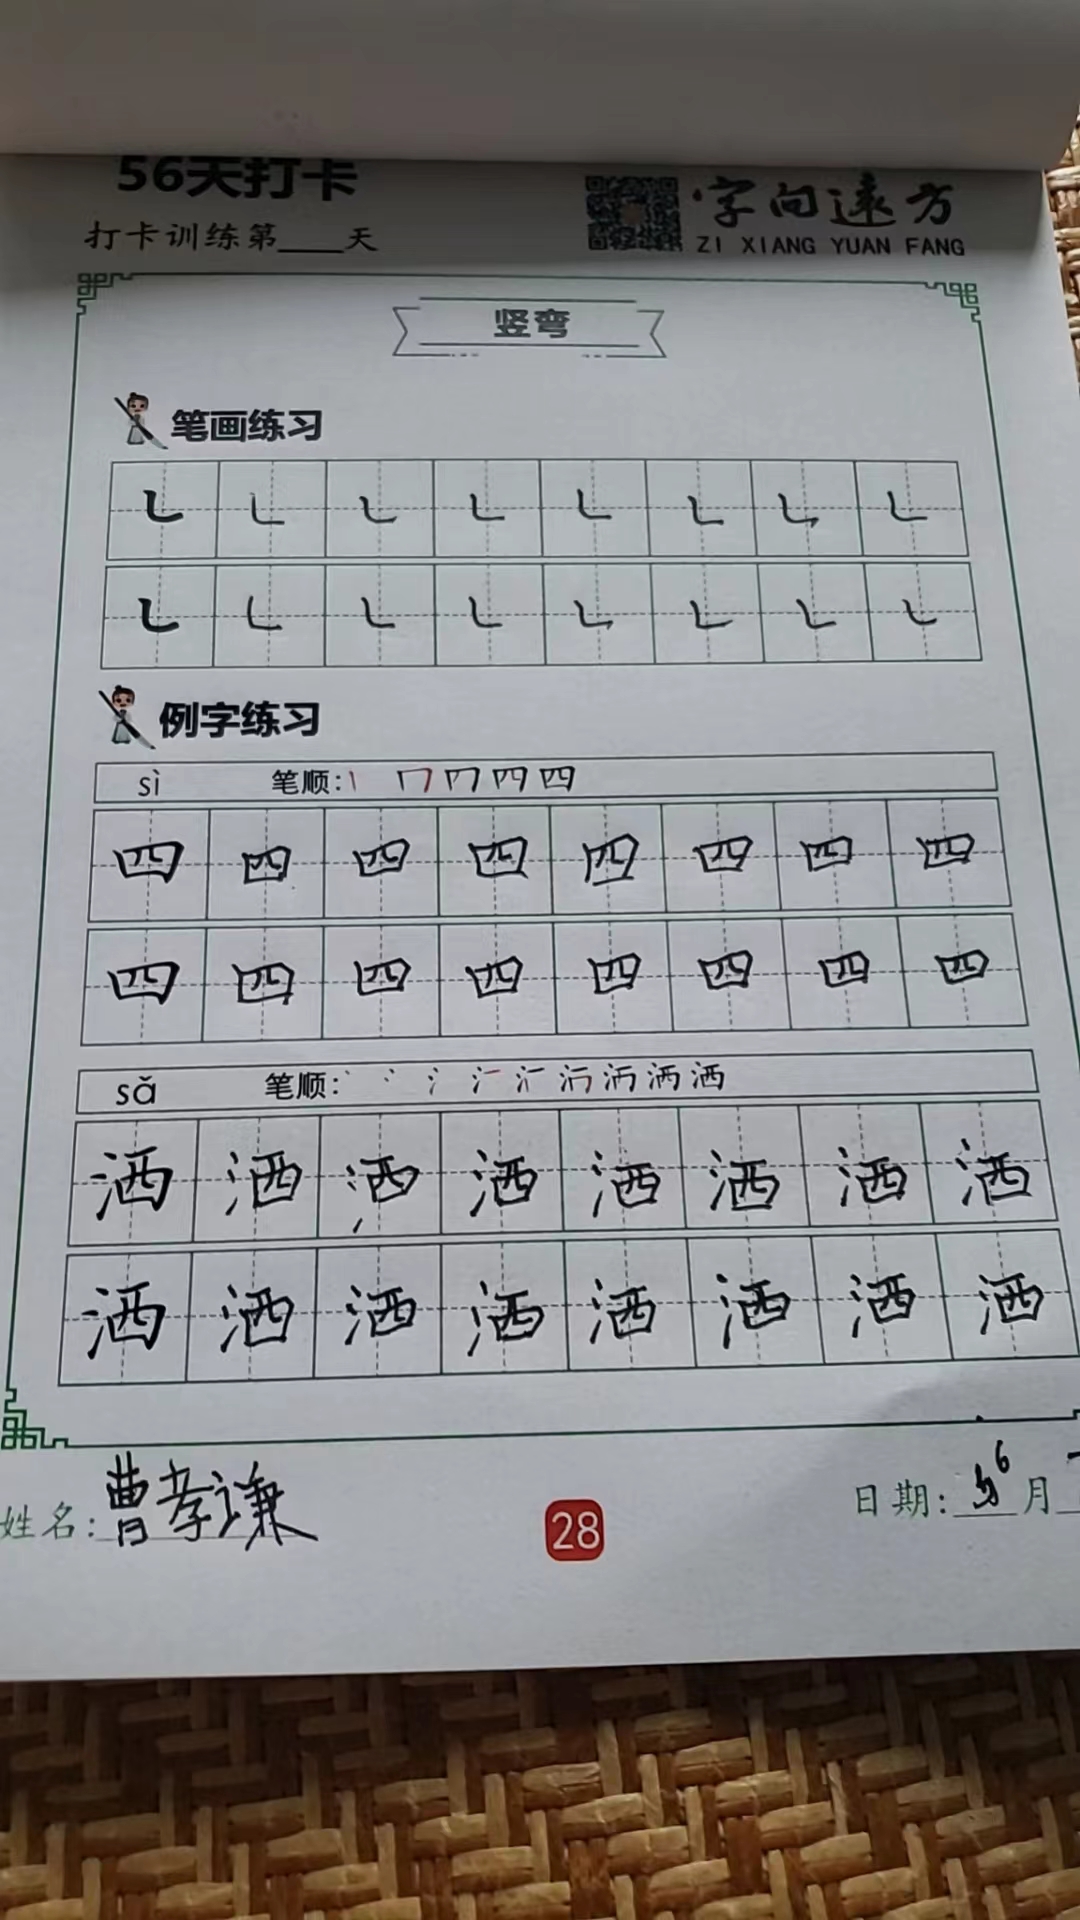 56天打卡
打卡训练第____天
字向远方
ZI XIANG YUAN FANG
竖弯
笔画练习
㇄ ㇄ ㇄ ㇄ ㇄ ㇄ ㇄ ㇄
㇄ ㇄ ㇄ ㇄ ㇄ ㇄ ㇄ ㇄
例字练习
sì 笔顺:
四 四 四 四 四 四 四 四
四 四 四 四 四 四 四 四
sǎ 笔顺:
洒 洒 洒 洒 洒 洒 洒 洒
洒 洒 洒 洒 洒 洒 洒 洒
姓名:曹孝谦
28
日期:6月